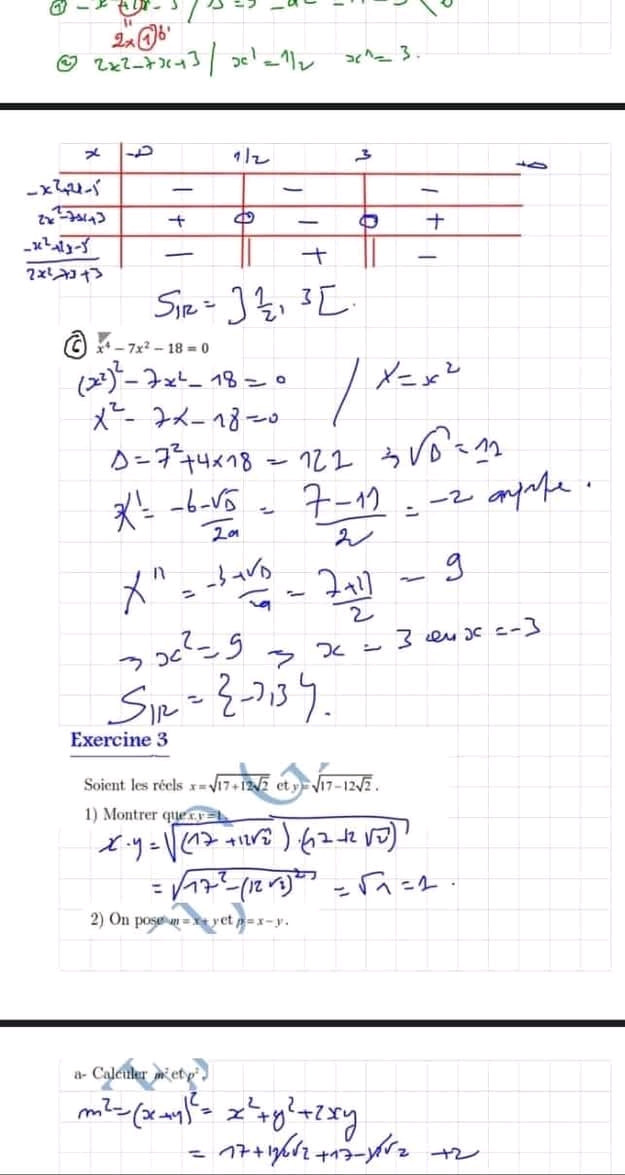 2x①
② 2x2-7x+3 / x' = 1/2 x" = 3.
x -∞ 1/2 3 +∞
- - -
2x²-7x+3 + 0 - 0 +
- || + || -
2x²-7x+3
S_IR = ]1/2, 3[.
C x⁴ - 7x² - 18 = 0
(x²)² - 7x² - 18 = 0 / X = x²
X² - 7X - 18 = 0
Δ = 7² + 4×18 = 121 → √Δ = 11
X' = -b-√Δ/2a = 7-11/2 = -2
X" = -b+√Δ/2a = 7+11/2 = 9
→ x² = 9 → x = 3 ou x = -3
S_IR = {-3,3}.
Exercine 3
Soient les réels x=√17+12√2 et y=√17-12√2.
1) Montrer que x.y=1
x.y = √(17+12√2).(17-12√2)
= √17²-(12√2)² = √1 = 1.
2) On pose m=x+y et p=x-y.
a- Calculer m² et p².
m² = (x+y)² = x²+y²+2xy
= 17+12√2+17-12√2 +2